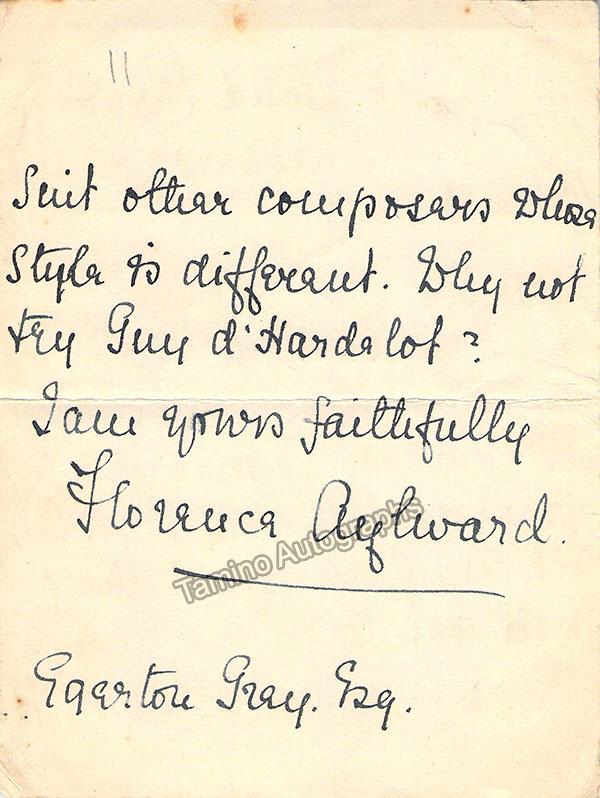 11
Suit other composers whose
style is different. Why not
try Guy d'Hardelot?
I am yours faithfully
Florence Aylward.
Tamino Autographs
Egerton Gray. Esq.